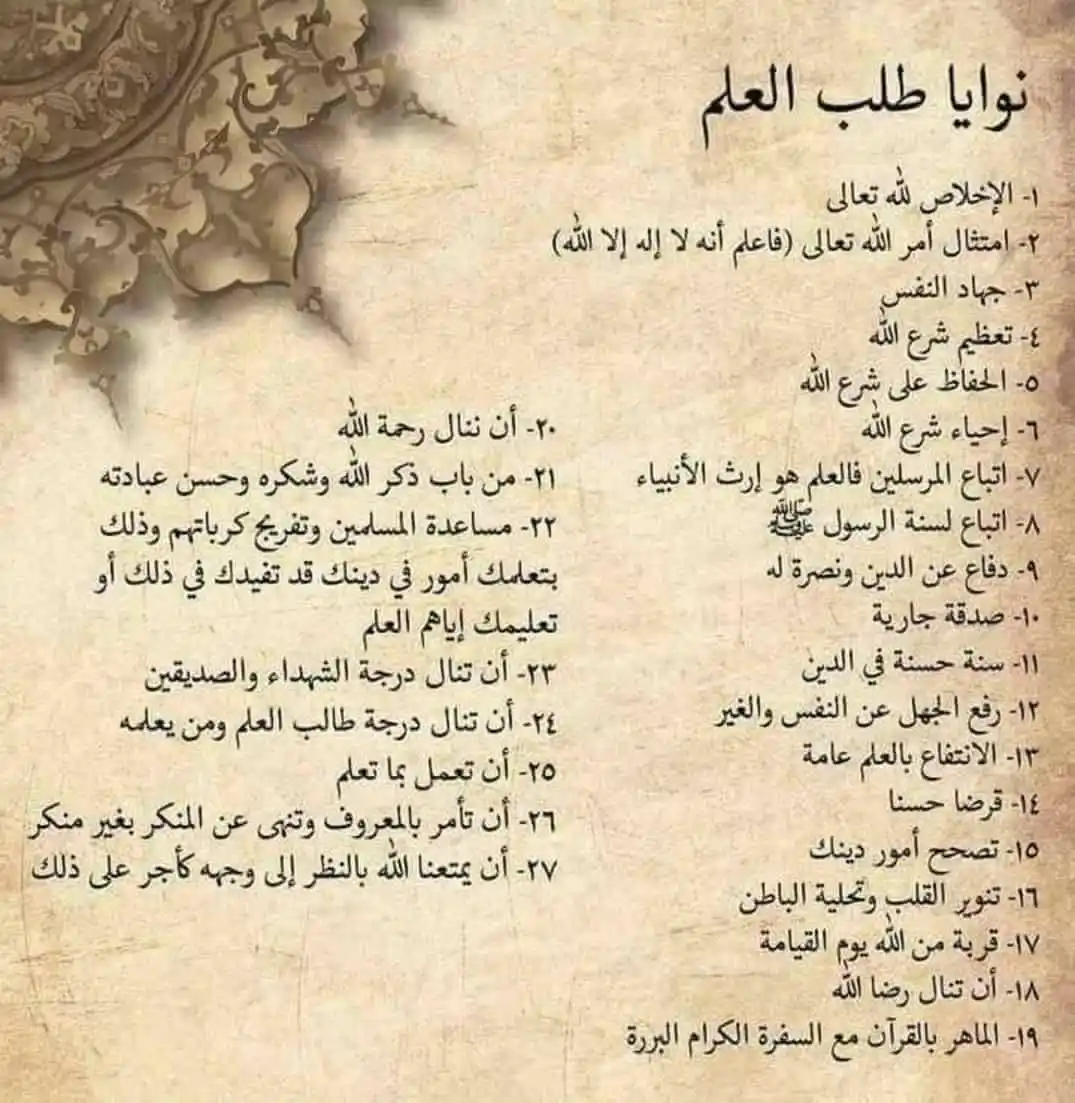 نوايا طلب العلم
١- الإخلاص لله تعالى
٢- امتثال أمر الله تعالى (فاعلم أنه لا إله إلا الله)
٣- جهاد النفس
٤- تعظيم شرع الله
٥- الحفاظ على شرع الله
٦- إحياء شرع الله
٧- اتباع المرسلين فالعلم هو إرث الأنبياء
٨- اتباع لسنة الرسول ﷺ
٩- دفاع عن الدين ونصرة له
١٠- صدقة جارية
١١- سنة حسنة في الدين
١٢- رفع الجهل عن النفس والغير
١٣- الانتفاع بالعلم عامة
١٤- قرضا حسنا
١٥- تصحح أمور دينك
١٦- تنوير القلب وتحلية الباطن
١٧- قربة من الله يوم القيامة
١٨- أن تنال رضا الله
١٩- الماهر بالقرآن مع السفرة الكرام البررة
٢٠- أن ننال رحمة الله
٢١- من باب ذكر الله وشكره وحسن عبادته
٢٢- مساعدة المسلمين وتفريج كرباتهم وذلك
بتعلمك أمور في دينك قد تفيدك في ذلك أو
تعليمك إياهم العلم
٢٣- أن تنال درجة الشهداء والصديقين
٢٤- أن تنال درجة طالب العلم ومن يعلمه
٢٥- أن تعمل بما تعلم
٢٦- أن تأمر بالمعروف وتنهى عن المنكر بغير منكر
٢٧- أن يمتعنا الله بالنظر إلى وجهه كأجر على ذلك